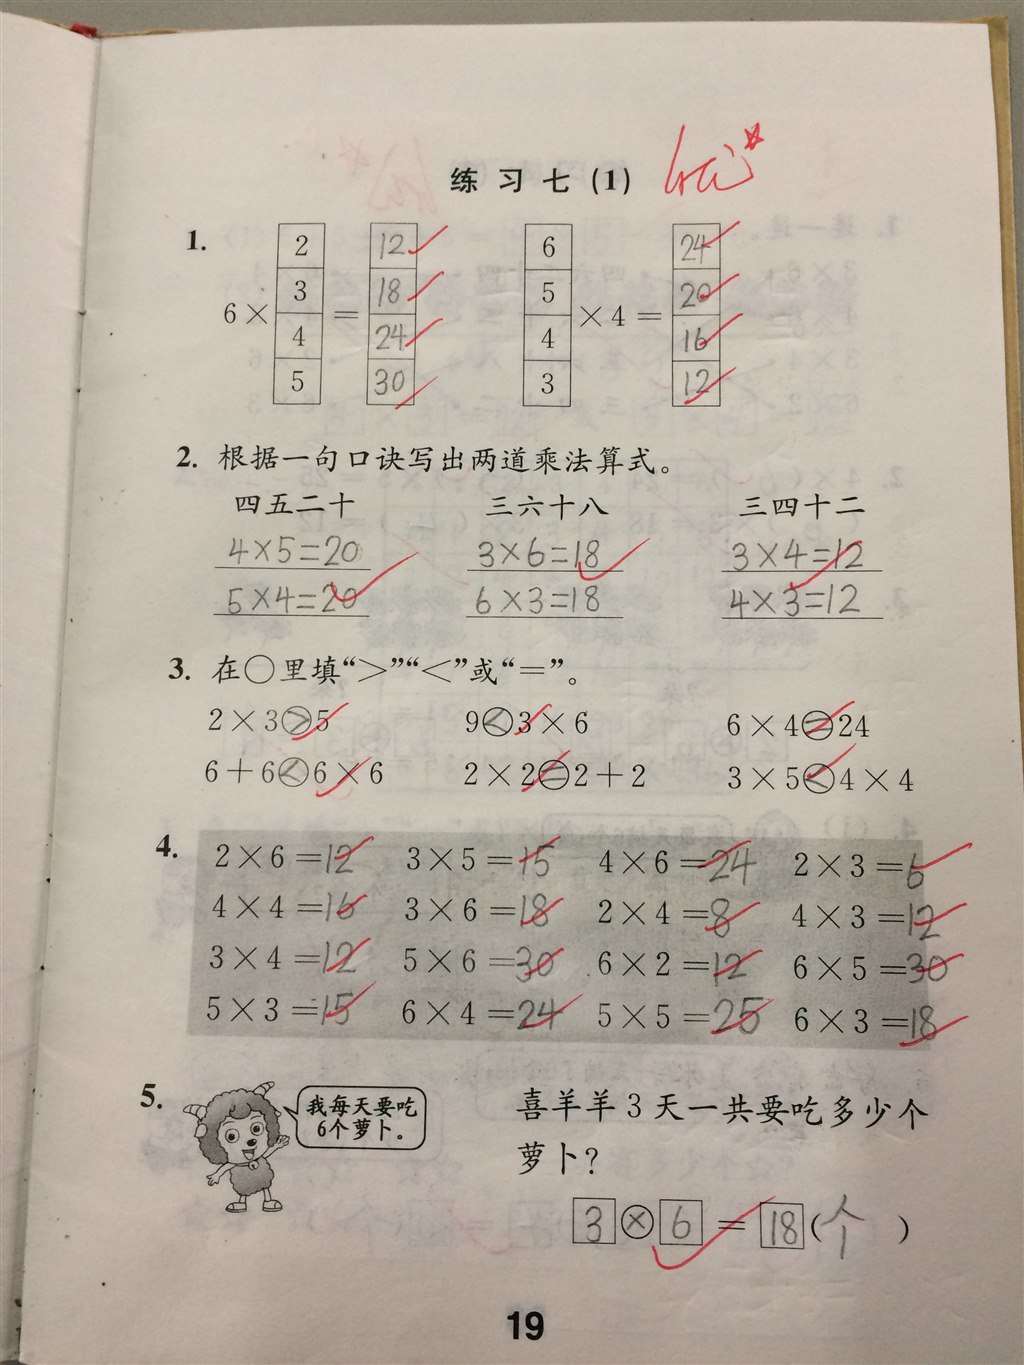 练习七(1) 优
1. 2 12 6 24
3 18 5 20
6× = ×4=
4 24 4 16
5 30 3 12
2. 根据一句口诀写出两道乘法算式。
四五二十 三六十八 三四十二
4×5=20 3×6=18 3×4=12
5×4=20 6×3=18 4×3=12
3. 在○里填“>”“<”或“=”。
2×3>5 9<3×6 6×4=24
6+6<6×6 2×2=2+2 3×5<4×4
4. 2×6=12 3×5=15 4×6=24 2×3=6
4×4=16 3×6=18 2×4=8 4×3=12
3×4=12 5×6=30 6×2=12 6×5=30
5×3=15 6×4=24 5×5=25 6×3=18
5. 我每天要吃
6个萝卜。
喜羊羊3天一共要吃多少个
萝卜?
3×6=18(个)
19